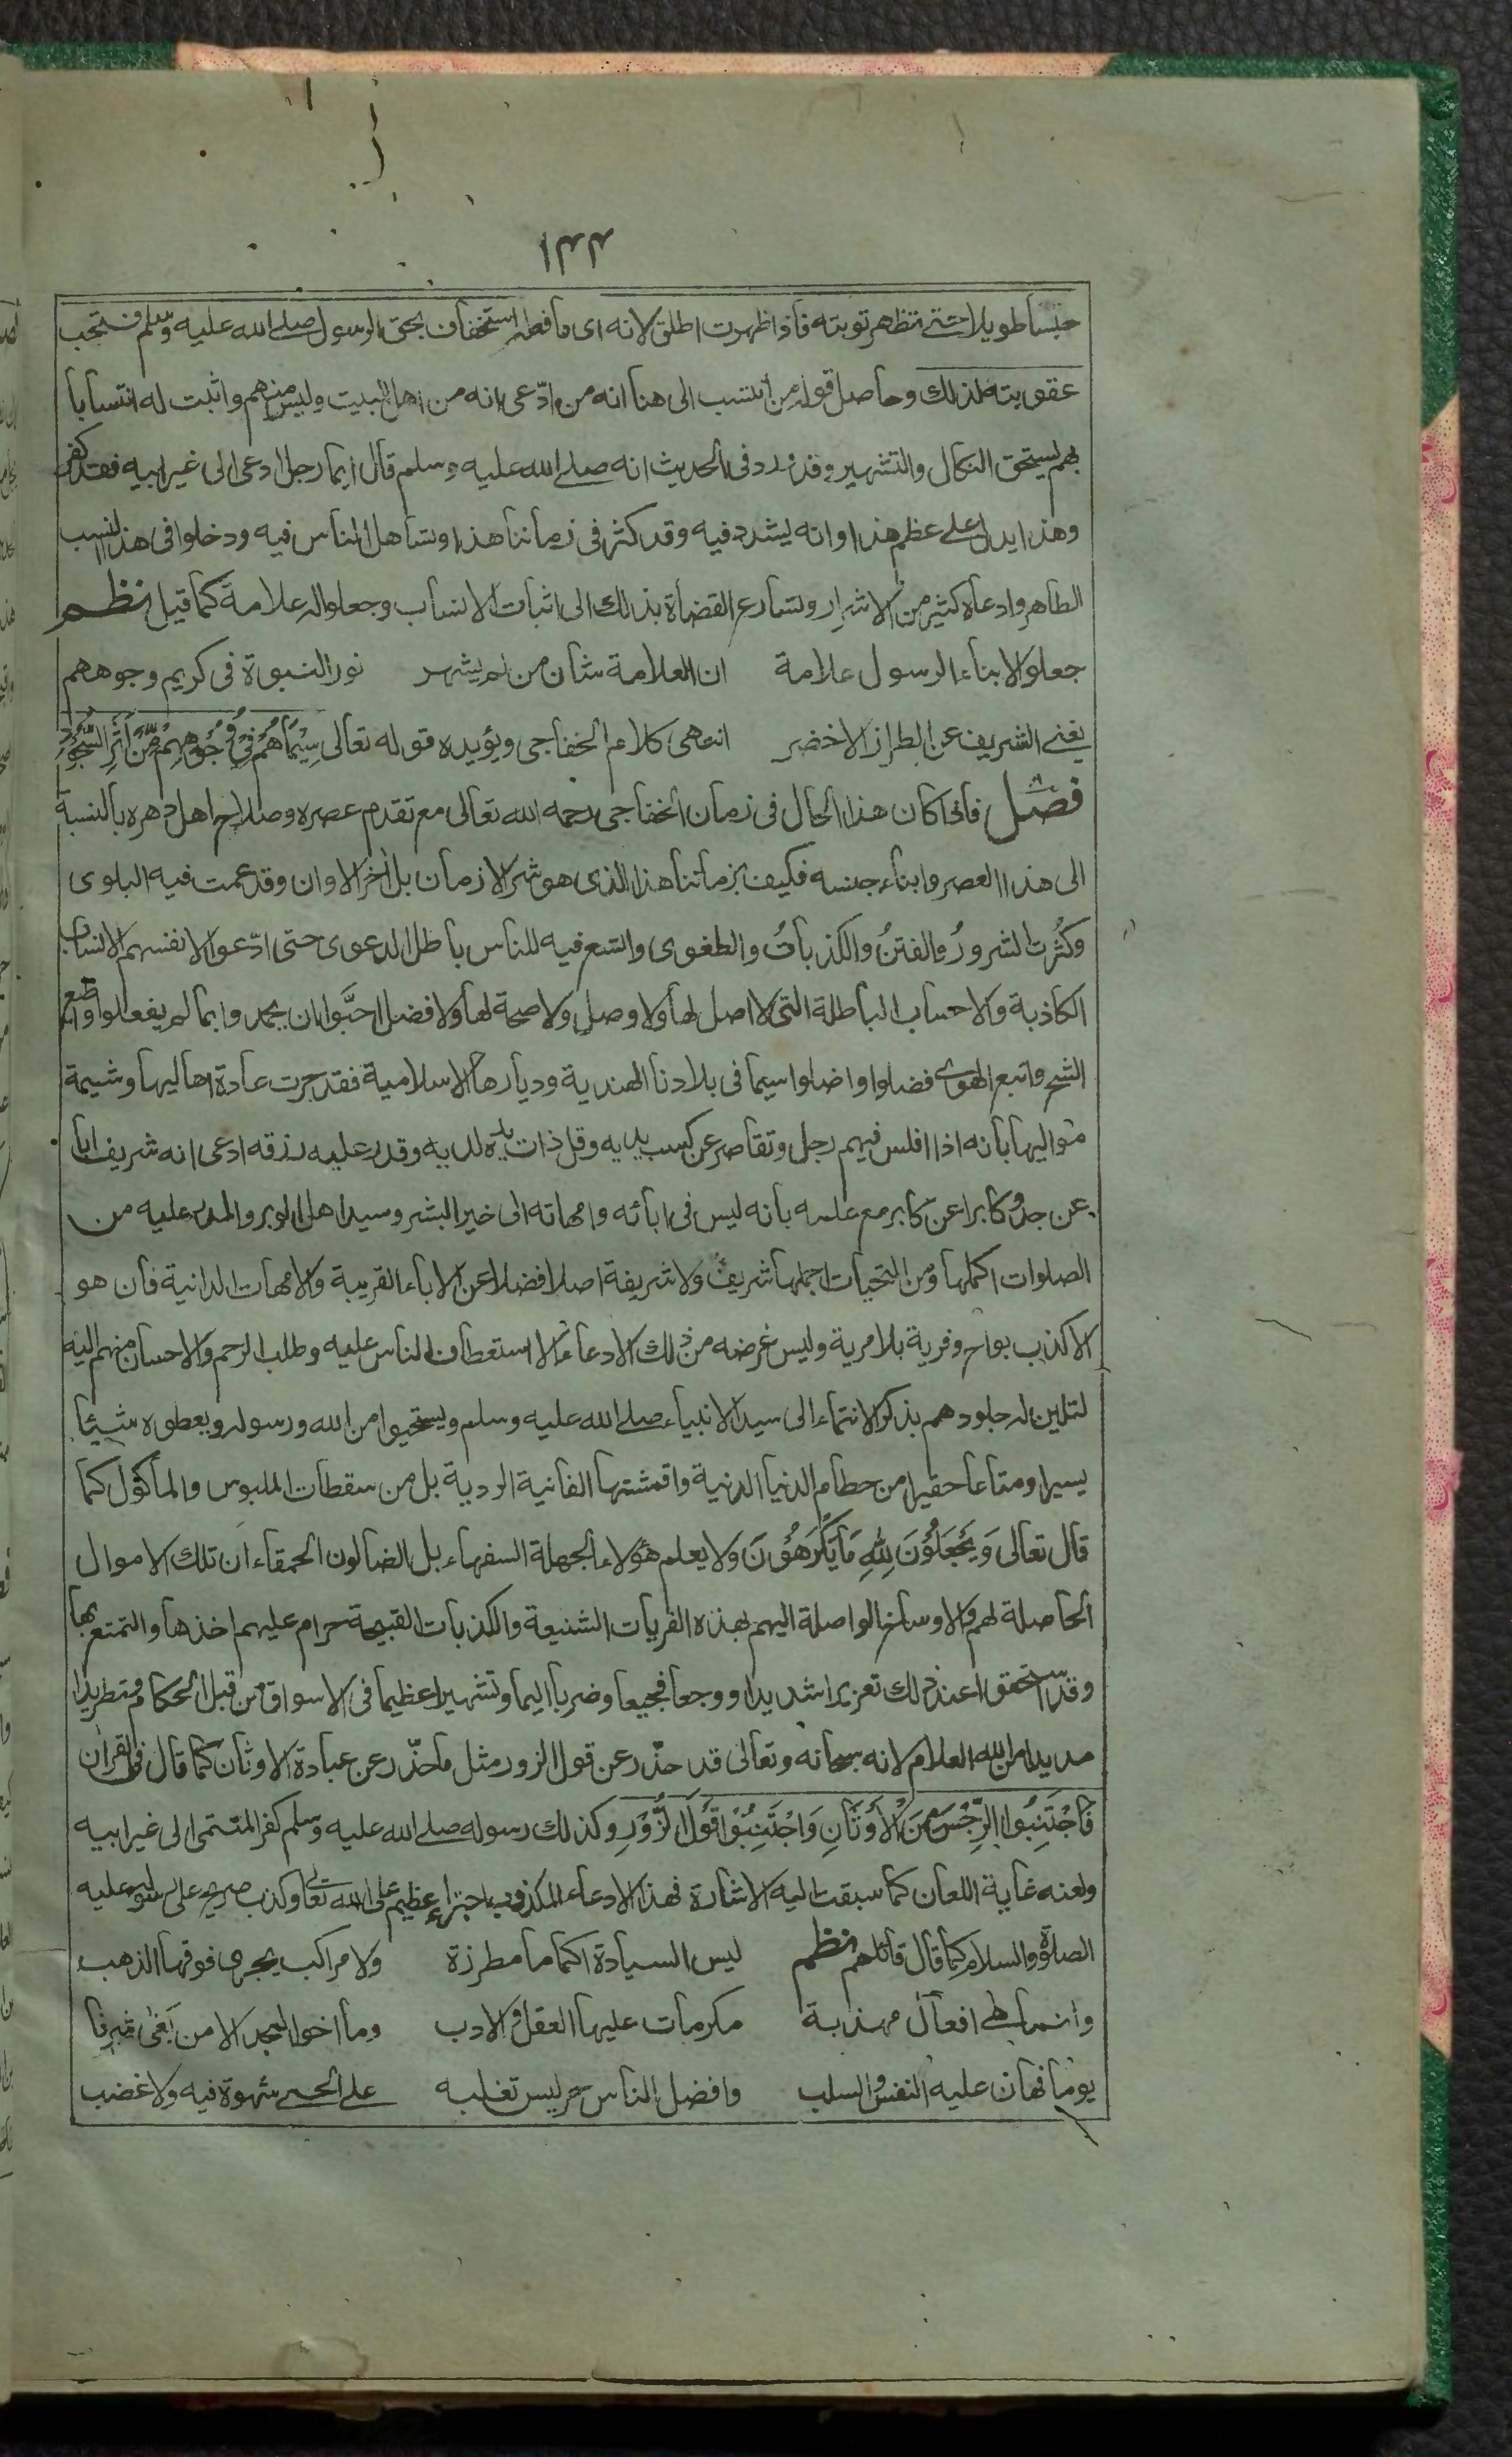 ١٣٣
حبسا طويلا حتى تظهر توبته فاذا ظهرت اطلق لانه اى ما فعله استخفاف بحق الرسول صلى الله عليه وسلم فتجب
عقوبته لذلك وحاصل قوله من انتسب الى هنا انه من ادّعى انه من اهل البيت وليس منهم واثبت له انتسابا
بهم يستحق النكال والتشهير وقد ورد فى الحديث انه صلى الله عليه وسلم قال ايما رجل ادعى الى غير ابيه فقد كفر
وهذا يدل على عظم هذا وانه يشدد فيه وقد كثر فى زماننا هذا وتساهل الناس فيه ودخلوا فى هذا النسب
الطاهر وادعاه كثير من الاشرار وتسارع القضاة بذلك الى اثبات الانساب وجعلوا له علامة كما قيل نظم
جعلوا لابناء الرسول علامة ان العلامة شان من لم يشهر نور النبوة فى كريم وجوههم
يغنى الشريف عن الطراز الاخضر انتهى كلام الخفاجى ويؤيده قوله تعالى سِيْمَاهُمْ فِىْ وُجُوْهِهِمْ مِّنْ اَثَرِ السُّجُوْدِ
فصل فاذا كان هذا الحال فى زمان الخفاجى رحمه الله تعالى مع تقدم عصره وصلاح اهل دهره بالنسبة
الى هذا العصر وابناء جنسه فكيف بزماننا هذا الذى هو شر الازمان بل اٰخر الاوان وقد عمت فيه البلوى
وكثُرت الشرورُ والفتنُ والكذباتُ والطغوى واتسع فيه للناس باطل الدعوى حتى ادّعوا لانفسهم الانساب
الكاذبة والاحساب الباطلة التى لا اصل لها ولا وصل ولا صحة لها ولا فضل احبَّوا ان يحمدوا بما لم يفعلوا واتبع
الشح واتبع الهوى فضلوا واضلوا سيما فى بلادنا الهندية وديارها الاسلامية فقد جرت عادة اهاليها وشيمة
مواليها بانه اذا افلس فيهم رجل وتقاصر عن كسب يديه وقل ذات يده لديه وقدر عليه رزقه ادعى انه شريف ابا
عن جد وكابرا عن كابر مع علمه بانه ليس فى اٰبائه وامهاته الى خير البشر وسيد اهل الوبر والمدر عليه من
الصلوات اكملها ومن التحيات اجملها شريف ولا شريفة اصلا فضلا عن الاباء القريبة والامهات الدانية فان هو
الا كذب بواح وفرية بلا مرية وليس غرضه من ذلك الادعاء الا استعطاف الناس عليه وطلب الرحم والاحسان منهم اليه
لتلين له جلودهم بذكر الانتماء الى سيد الانبياء صلى الله عليه وسلم ويستحيوا من الله ورسوله ويعطوه شيئا
يسيرا ومتاعا حقيرا من حطام الدنيا الدنية واقمشتها الفانية الردية بل من سقطات الملبوس والماكول كما
قال تعالى وَيَجْعَلُوْنَ لِلّٰهِ مَا يَكْرَهُوْنَ ولا يعلم هؤلاء الجهلة السفهاء بل الضالون الحمقاء ان تلك الاموال
الحاصلة لهم والاوساخ الواصلة اليهم بهذه الفريات الشنيعة والكذبات القبيحة حرام عليهم اخذها والتمتع بها
وقد استحقوا عند ذلك تعزيرا شديدا ووجعا فجيعا وضربا اليما وتشهيرا عظيما فى الاسواق من قبل الحكام وتطريدا
مديدا من الله العلام لانه سبحانه وتعالى قد حذّر عن قول الزور مثل ما حذّر عن عبادة الاوثان كما قال فى القران
فَاجْتَنِبُوا الرِّجْسَ مِنَ الْاَوْثَانِ وَاجْتَنِبُوْا قَوْلَ الزُّوْرِ وكذلك رسوله صلى الله عليه وسلم كفر المنتمى الى غير ابيه
ولعنه غاية اللعان كما سبقت اليه الاشارة فهذا الادعاء المكذوب اجتراء عظيم على الله تعالى وكذب صريح على رسوله عليه
الصلوة والسلام كما قال قائلهم نظم ليس السيادة اكماما مطرزة ولا مراكب يجرى فوقها الذهب
وانما هى افعال مهذبة مكرمات عليها العقل والادب وما اخو المجد الا من بَغٰى شرفا
يوما فهان عليه النفس والسلب وافضل الناس حر ليس تغلبه على الحجى شهوة فيه ولا غضب